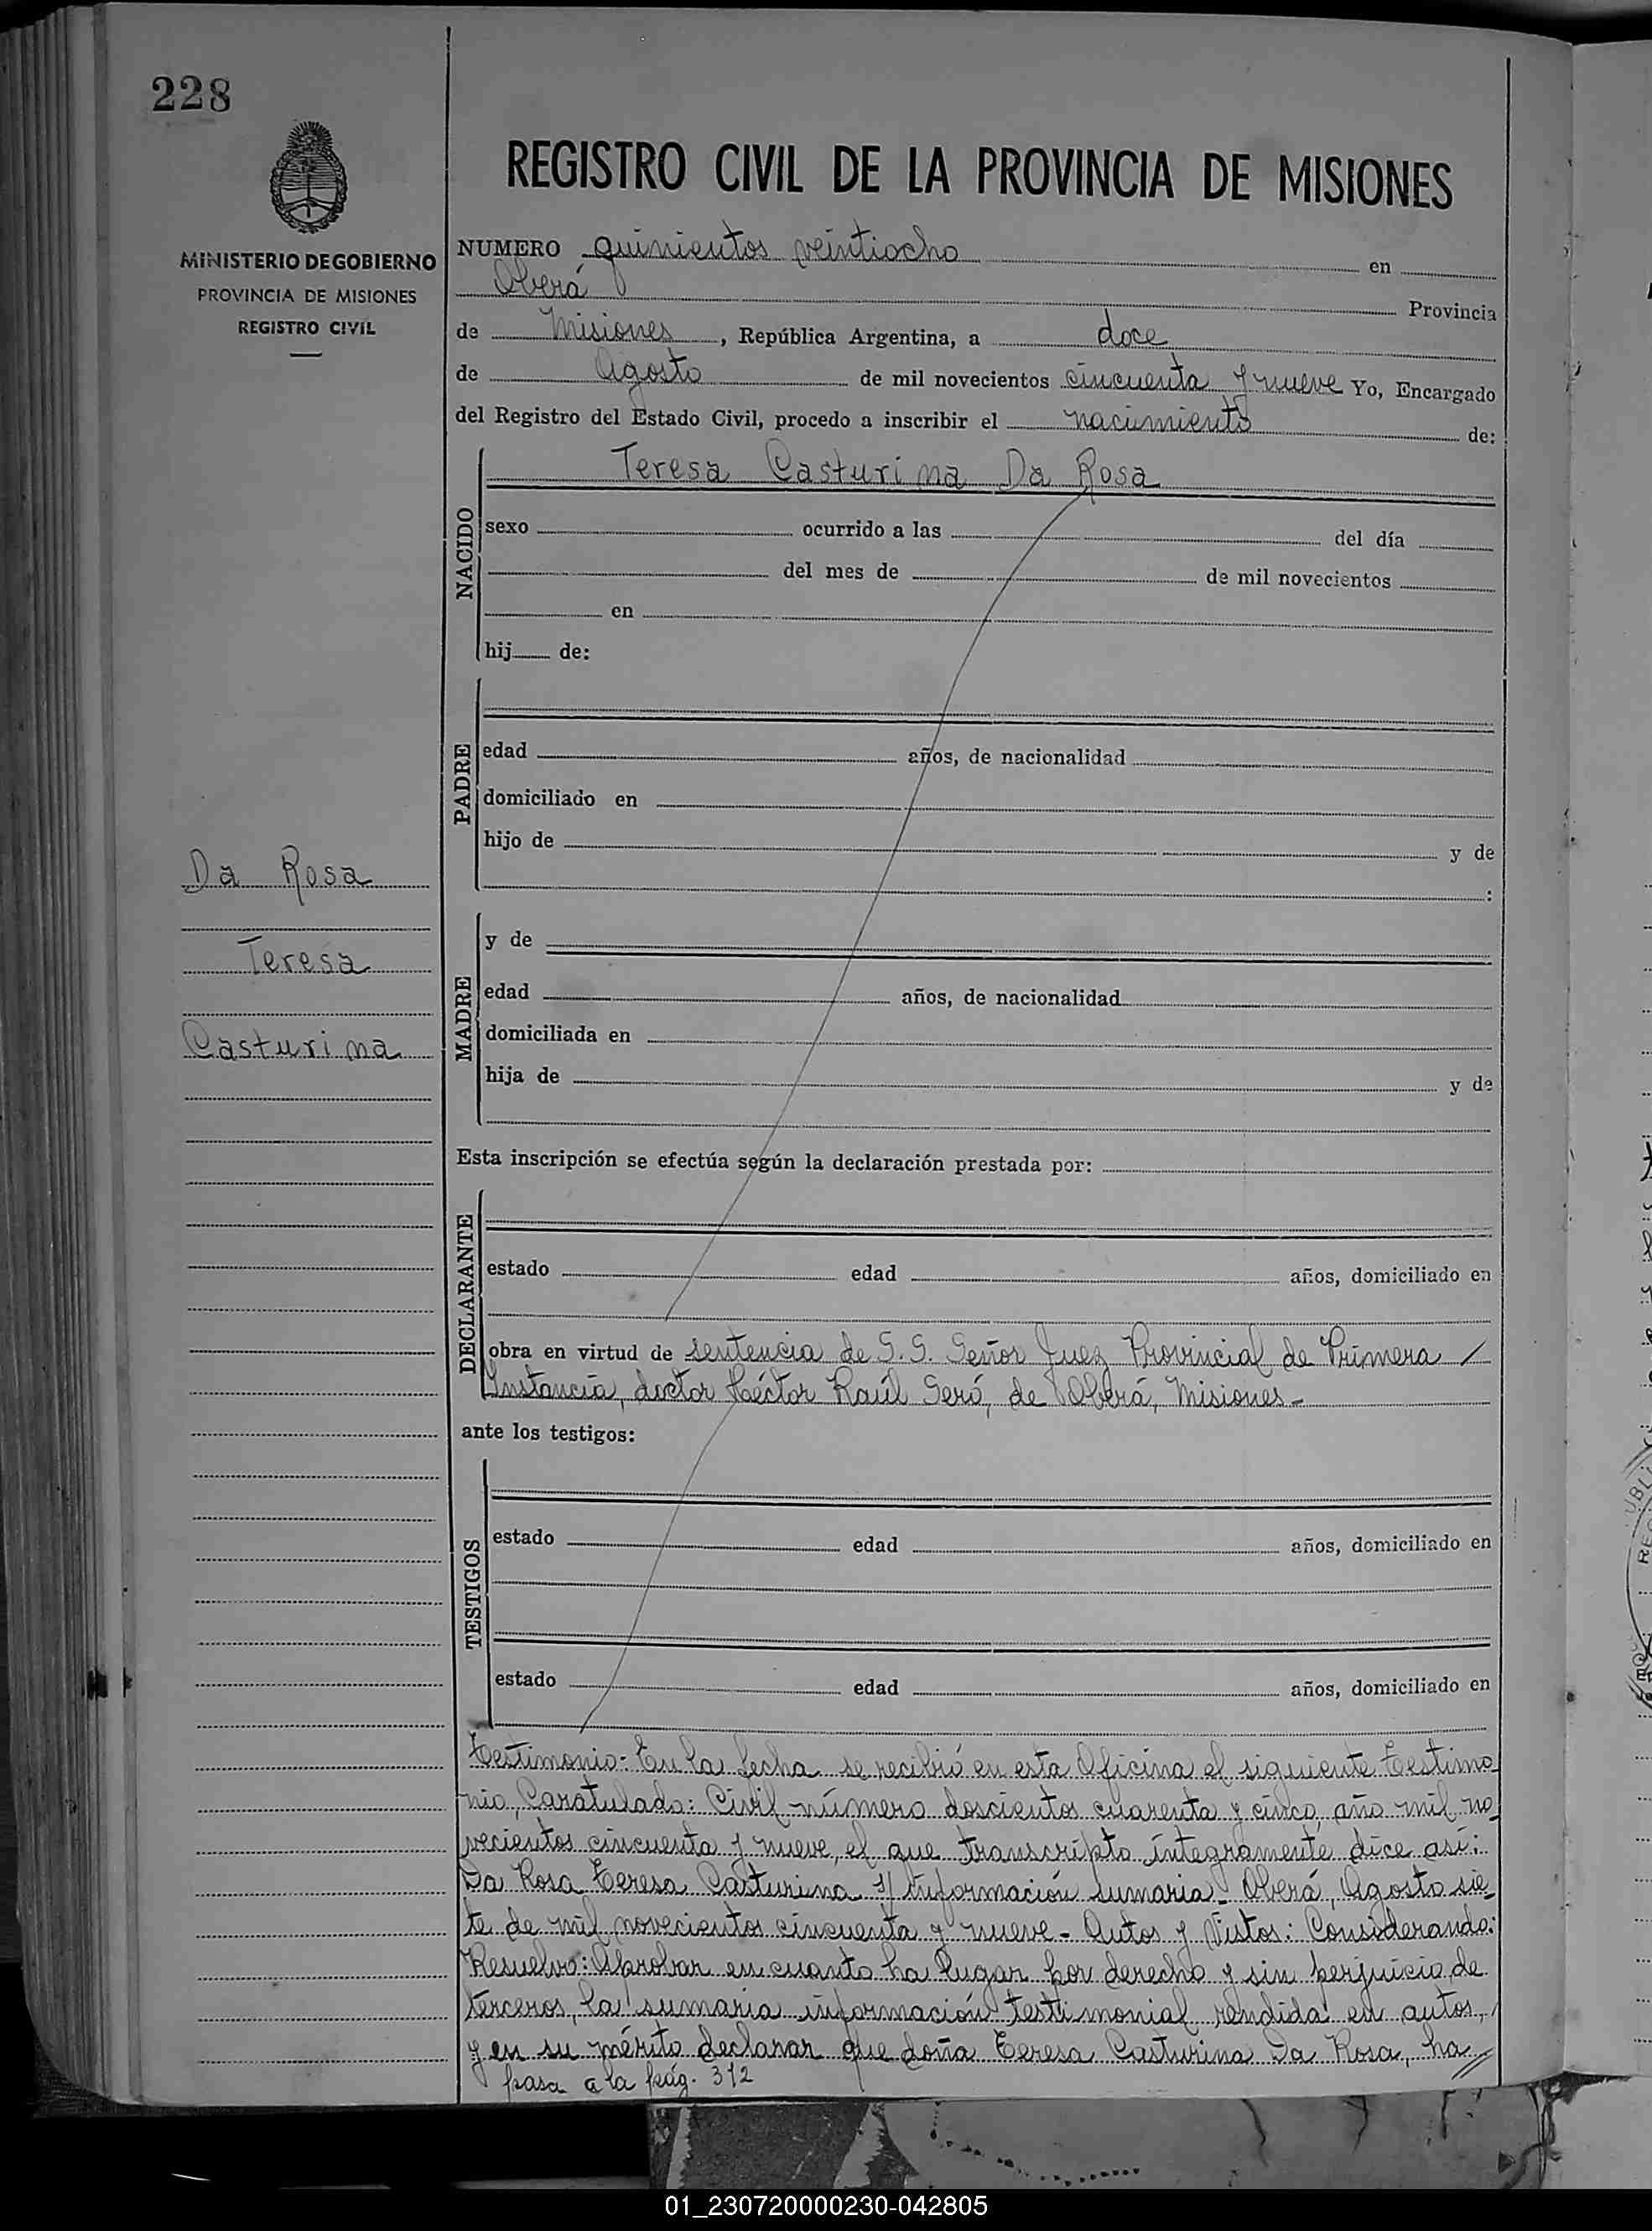 228
REGISTRO CIVIL DE LA PROVINCIA DE MISIONES
MINISTERIO DE GOBIERNO
PROVINCIA DE MISIONES
REGISTRO CIVIL
NUMERO quinientos veintiocho en
Oberá Provincia
de Misiones, República Argentina, a doce
de Agosto de mil novecientos cincuenta y nueve Yo, Encargado
del Registro del Estado Civil, procedo a inscribir el nacimiento de:
NACIDO
Teresa Casturina Da Rosa
sexo ocurrido a las del día
del mes de de mil novecientos
en
hij de:
PADRE
edad años, de nacionalidad
domiciliado en
hijo de y de
:
Da Rosa
Teresa
Casturina
MADRE
y de
edad años, de nacionalidad
domiciliada en
hija de y de
Esta inscripción se efectúa según la declaración prestada por:
DECLARANTE
estado edad años, domiciliado en
obra en virtud de sentencia de S. S. Señor Juez Provincial de Primera /
Instancia, doctor Héctor Raúl Seró, de Oberá, Misiones -
ante los testigos:
TESTIGOS
estado edad años, domiciliado en
estado edad años, domiciliado en
Testimonio: En la fecha se recibió en esta Oficina el siguiente Testimo
nio, Caratulado: Civil número doscientos cuarenta y cinco, año mil no
vecientos cincuenta y nueve, el que transcripto íntegramente dice así:
Da Rosa Teresa Casturina s/ Información sumaria - Oberá, Agosto sie
te de mil novecientos cincuenta y nueve - Autos y Vistos: Considerando:
Resuelvo: Aprobar en cuanto ha lugar por derecho y sin perjuicio de
terceros, la sumaria información testimonial rendida en autos,
y en su mérito declarar que doña Teresa Casturina Da Rosa, ha //
pasa a la pág. 312
01_230720000230-042805